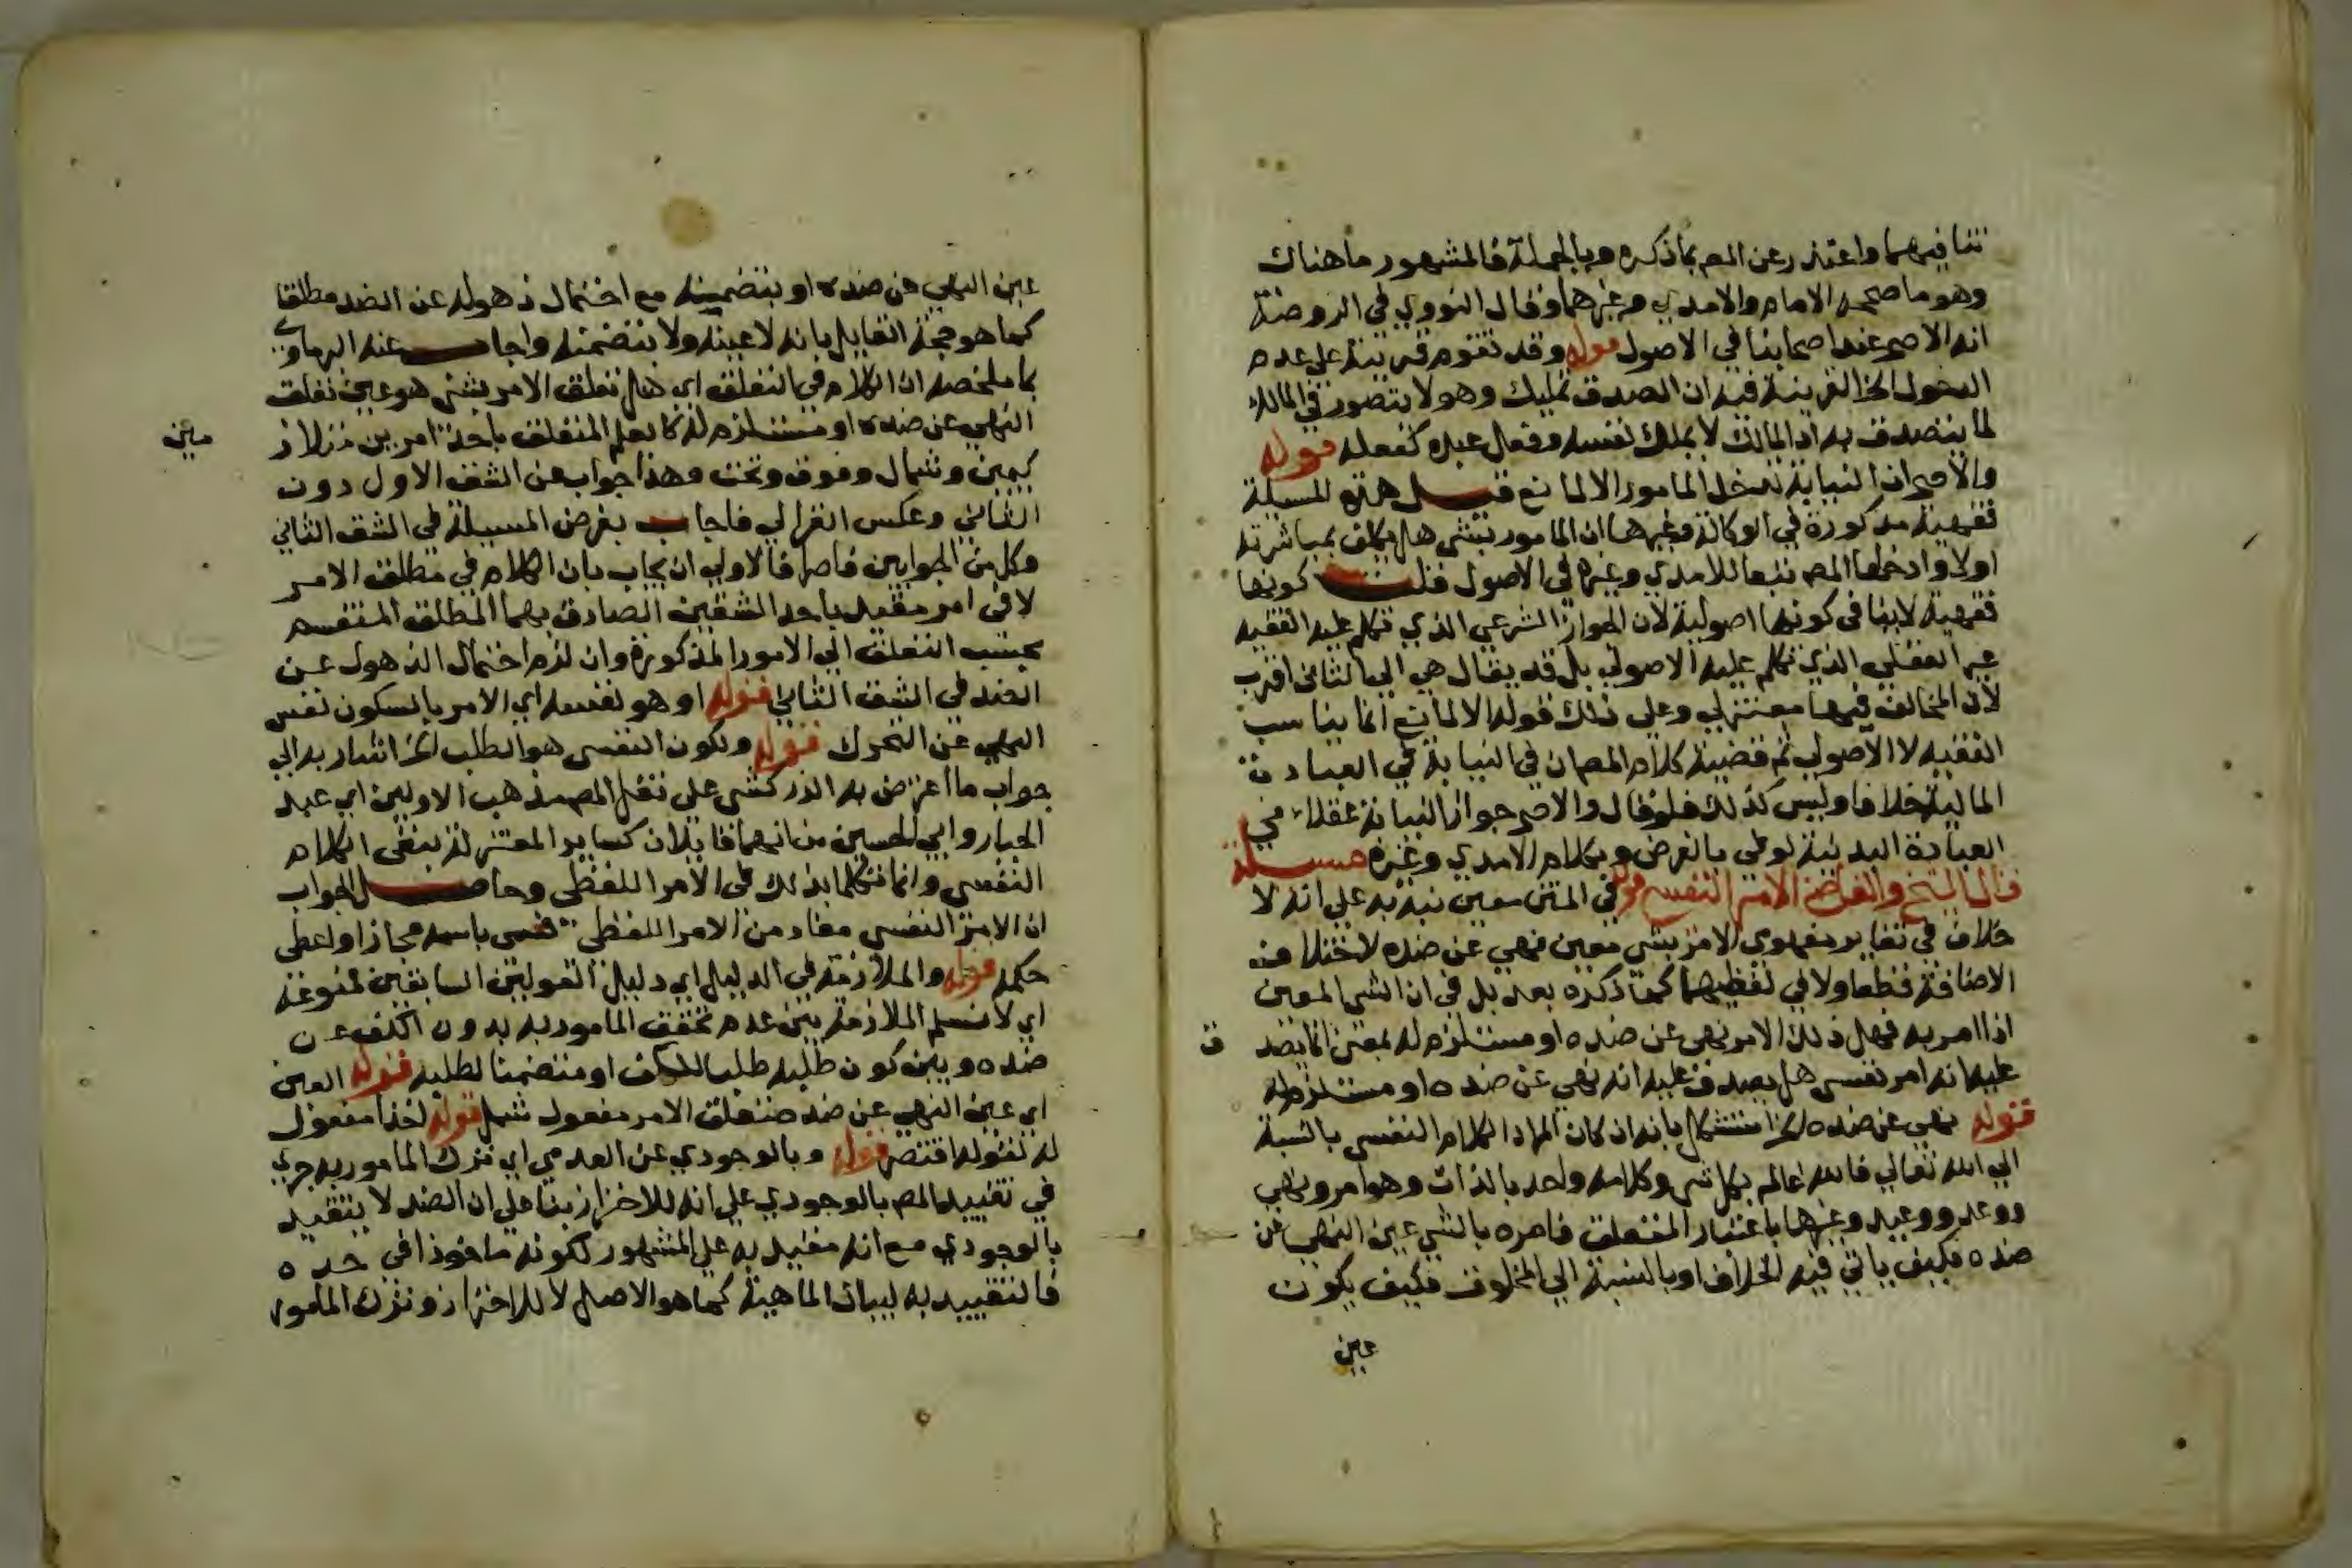 تنافيهما واعتذر عن المص بما ذكره وبالجملة فالمشهور ما هناك
وهو ما صححه الامام والامدي وغيرهما وقال النووي في الروضة
انه الاصح عند اصحابنا في الاصول قوله وقد تقوم قرينة على عدم
الدخول الخ القرينة فيه ان الصدق تمليك وهو لا يتصور في المالك
لما يتصدق به اذ المالك لا يملك نفسه وفعل عبده كفعله قوله
والاصح ان النيابة تدخل المامور الا لمانع قيل هذه المسيلة
فقهية مذكورة في الوكالة وغيرها ان المامور بشي هل يكلف بمباشرته
اولا وادخلها المص تبعا للامدي وغيره في الاصول قلت كونها
فقهية لا ينافي كونها اصولية لان الجواز الشرعي الذي تكلم عليه الفقيه
غير العقلي الذي تكلم عليه الاصولي بل قد يقال هي الى الثاني اقرب
لان المخالف فيها معتزلي وعلى ذلك قوله الا لمانع انما يناسب
الفقيه لا الاصولي ثم قضية كلام المص ان في النيابة في العبادة
المالية خلافا وليس كذلك فلو قال والاصح جواز النيابة عقلا في
العبادة البدنية لوفى بالغرض وبكلام الامدي وغيره مسيلة
قال الشيخ والقاضي الامر النفسي قوله في المتن معين نبه به على انه لا
خلاف في تغاير مفهومي الامر بشي معين نهي عن ضده لاختلاف
الاضافة قطعا ولا في لفظيهما كما ذكره بعد بل في ان الشي المعين
اذا امر به فهل ذلك الامر نهي عن ضده او مستلزم له بمعنى ان ما يصد ق
عليه انه امر نفسي هل يصدق عليه انه نهي عن ضده او مستلزم له
قوله نهي عن ضده الخ استشكل بانه ان كان المراد الكلام النفسي بالنسبة
الى الله تعالى فالله عالم بكل شي وكلامه واحد بالذات وهو امر ونهي
ووعد ووعيد وغيرها باعتبار المتعلق فامره بالشي عين النهي عن
ضده فكيف ياتي فيه الخلاف او بالنسبة الى المخلوق فكيف يكون
عين
عين النهي عن ضده او يتضمنه مع احتمال ذهوله عن الضد مطلقا
كما هو حجة القايل بانه لا عينه ولا يتضمنه واجاب عنه البرماوي
بما ملخصه ان الكلام في التعلق اي هل تعلق الامر بشي هو عين تعلق
النهي عن ضده او مستلزم له كالعلم المتعلق باحد امرين متلاز مين
كيمين وشمال وفوق وتحت وهذا جواب عن الشق الاول دون
الثاني وعكس الغزالي فاجاب بفرض المسيلة في الشق الثاني
وكل من الجوابين قاصر فالاولى ان يجاب بان الكلام في مطلق الامر
لا في امر مقيد باحد الشقين الصادق بهما المطلق المنقسم
بحسب التعلق الى الامور المذكورة وان لزم احتمال الذهول عن
الضد في الشق الثاني قوله او هو نفسه اي الامر بالسكون نفس
النهي عن التحرك قوله وبكون النفسي هو الطلب الخ اشار به الى
جواب ما اعترض به الزركشي على نقل المص مذهب الاولين اي عبد
الجبار وابي الحسين من انهما قايلان كساير المعتزلة بنفي الكلام
النفسي وانما تكلما بذلك في الامر اللفظي وحاصل الجواب
ان الامر النفسي مفاد من الامر اللفظي فسمي باسمه مجازا واعطي
حكمه قوله والملازمة في الدليل اي دليل القولين السابقين ممنوعة
اي لا نسلم الملازمة بين عدم تحقق المامور به بدون الكف عن
ضده وبين كون طلبه طلبا للكف او متضمنا لطلبه قوله العين
اي عين النهي عن ضد متعلق الامر مفعول شمل قوله اخذا مفعول
له لقوله اقتصر قوله وبالوجودي عن العدمي اي ترك المامور به جرى
في تقييد المص بالوجودي على انه للاحتراز بنا على ان الضد لا يتقيد
بالوجودي مع انه مقيد به على المشهور لكونه ماخوذا في حده
فالتقييد به لبيان الماهية كما هو الاصل لا للاحتراز وترك المامور